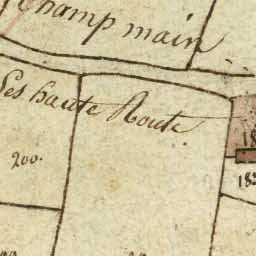 Champ main
Les haute Route
200.